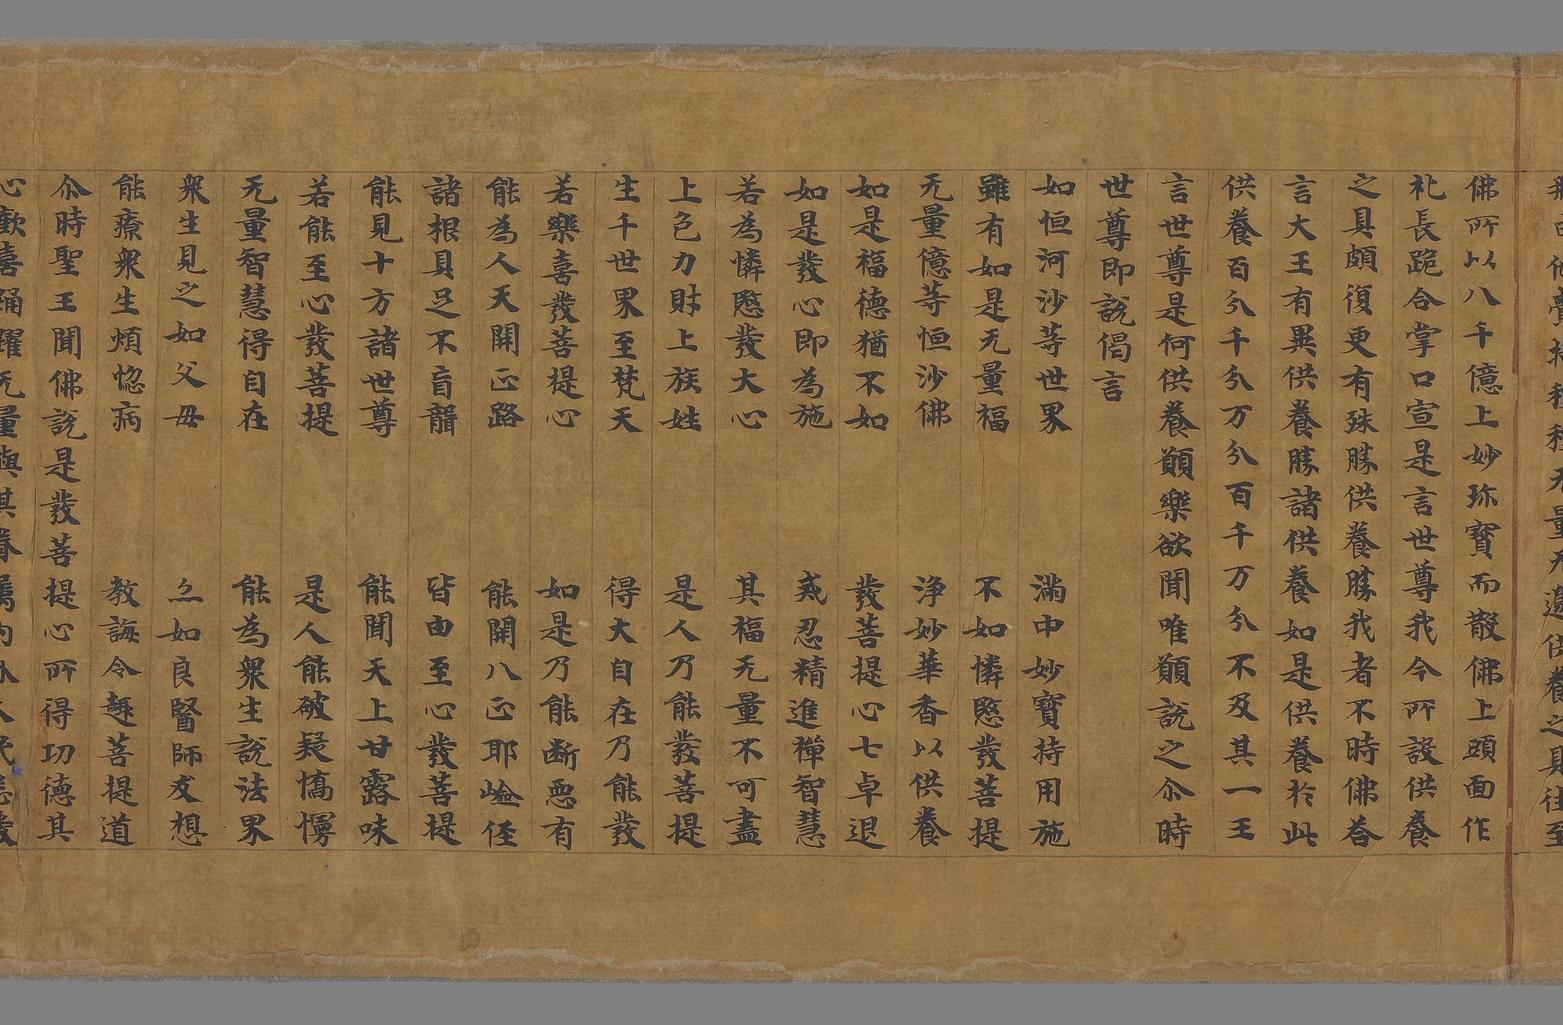 種種无量无邊供養之具往至
佛所以八千億上妙珎寶而散佛上頭面作
礼長跪合掌口宣是言世尊我今所設供養
之具頗復更有殊勝供養勝我者不時佛荅
言大王有異供養勝諸供養如是供養於此
供養百分千分万分百千万分不及其一王
言世尊是何供養願樂欲聞唯願說之尒時
世尊即說偈言
如恒河沙等世界　滿中妙寶持用施
雖有如是无量福　不如憐愍發菩提
无量億等恒沙佛　淨妙華香以供養
如是福德猶不如　發菩提心七卓退
如是發心即為施　戒忍精進禪智慧
若為憐愍發大心　其福无量不可盡
上色力財上族姓　是人乃能發菩提
生千世界至梵天　得大自在乃能發
若樂喜發菩提心　如是乃能断惡有
能為人天開正路　能開八正耶嶮俓
諸根具足不盲聾　皆由至心發菩提
能見十方諸世尊　能聞天上甘露味
若能至心發菩提　是人能破疑憍慢
无量智慧得自在　能為衆生說法界
衆生見之如父母　亦如良醫師友想
能療衆生煩惚病　教誨令趣菩提道
尒時聖王聞佛說是發菩提心所得功德其
心歡喜踊躍无量與其眷屬內外人民悉發